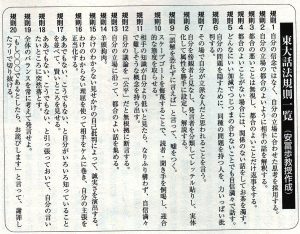 東大話法規則一覧（安冨歩教授作成）
規則1 自分の信念ではなく、自分の立場に合わせた思考を採用する。
規則2 自分の立場の都合のよいように相手の話を解釈する。
規則3 都合の悪いことは無視し、都合のよいことだけ返事をする。
規則4 都合のよいことがない場合には、関係のない話をしてお茶を濁す。
規則5 どんなにいい加減でつじつまの合わないことでも自信満々で話す。
規則6 自分の問題を隠すために、同種の問題を持つ人を、力いっぱい批判する。
規則7 その場で自分が立派な人だと思われることを言う。
規則8 自分を傍観者と見なし、発言者を分類してレッテル貼りし、実体化して属性を勝手に設定し、解説する。
規則9 「誤解を恐れずに言えば」と言って、嘘をつく。
規則10 スケープゴートを侮蔑することで、読者・聞き手を恫喝し、迎合的な態度を取らせる。
規則11 相手の知識が自分より低いと見たら、なりふり構わず、自信満々で難しそうな概念を持ち出す。
規則12 自分の議論を「公平」だと無根拠に断言する。
規則13 自分の立場に沿って、都合のよい話を集める。
規則14 羊頭狗肉。
規則15 わけのわからない見せかけの自己批判によって、誠実さを演出する。
規則16 わけのわからない理屈を使って相手をケムに巻き、自分の主張を正当化する。
規則17 ああでもない、こうでもない、と自分がいろいろ知っていることを並べて、賢いところを見せる。
規則18 ああでもない、こうでもない、と引っ張っておいて、自分の言いたいところに突然落とす。
規則19 全体のバランスを常に考えて発言せよ。
規則20 「もし○○○であるとしたら、お詫びします」と言って、謝罪したフリで切り抜ける。